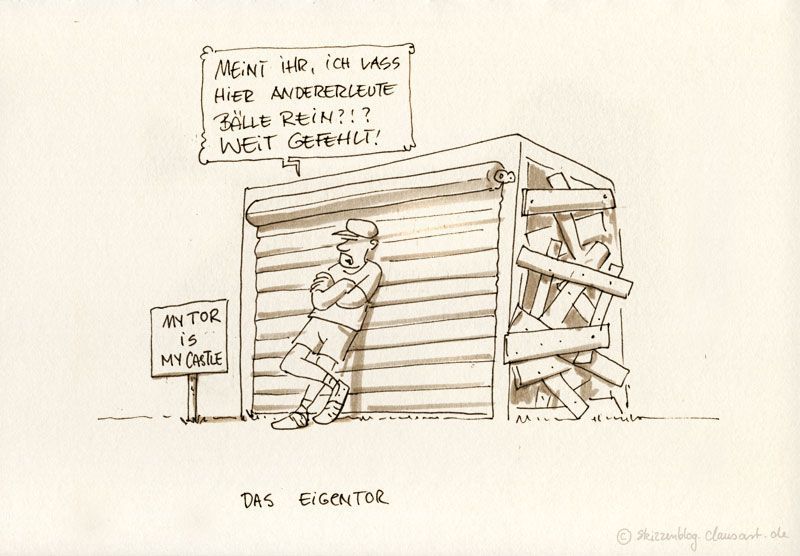 MEINT IHR, ICH LASS
HIER ANDERERLEUTE
BÄLLE REIN?!?
WEIT GEFEHLT!
MY TOR
IS
MY CASTLE
DAS EIGENTOR
© skizzenblog.clausast.de